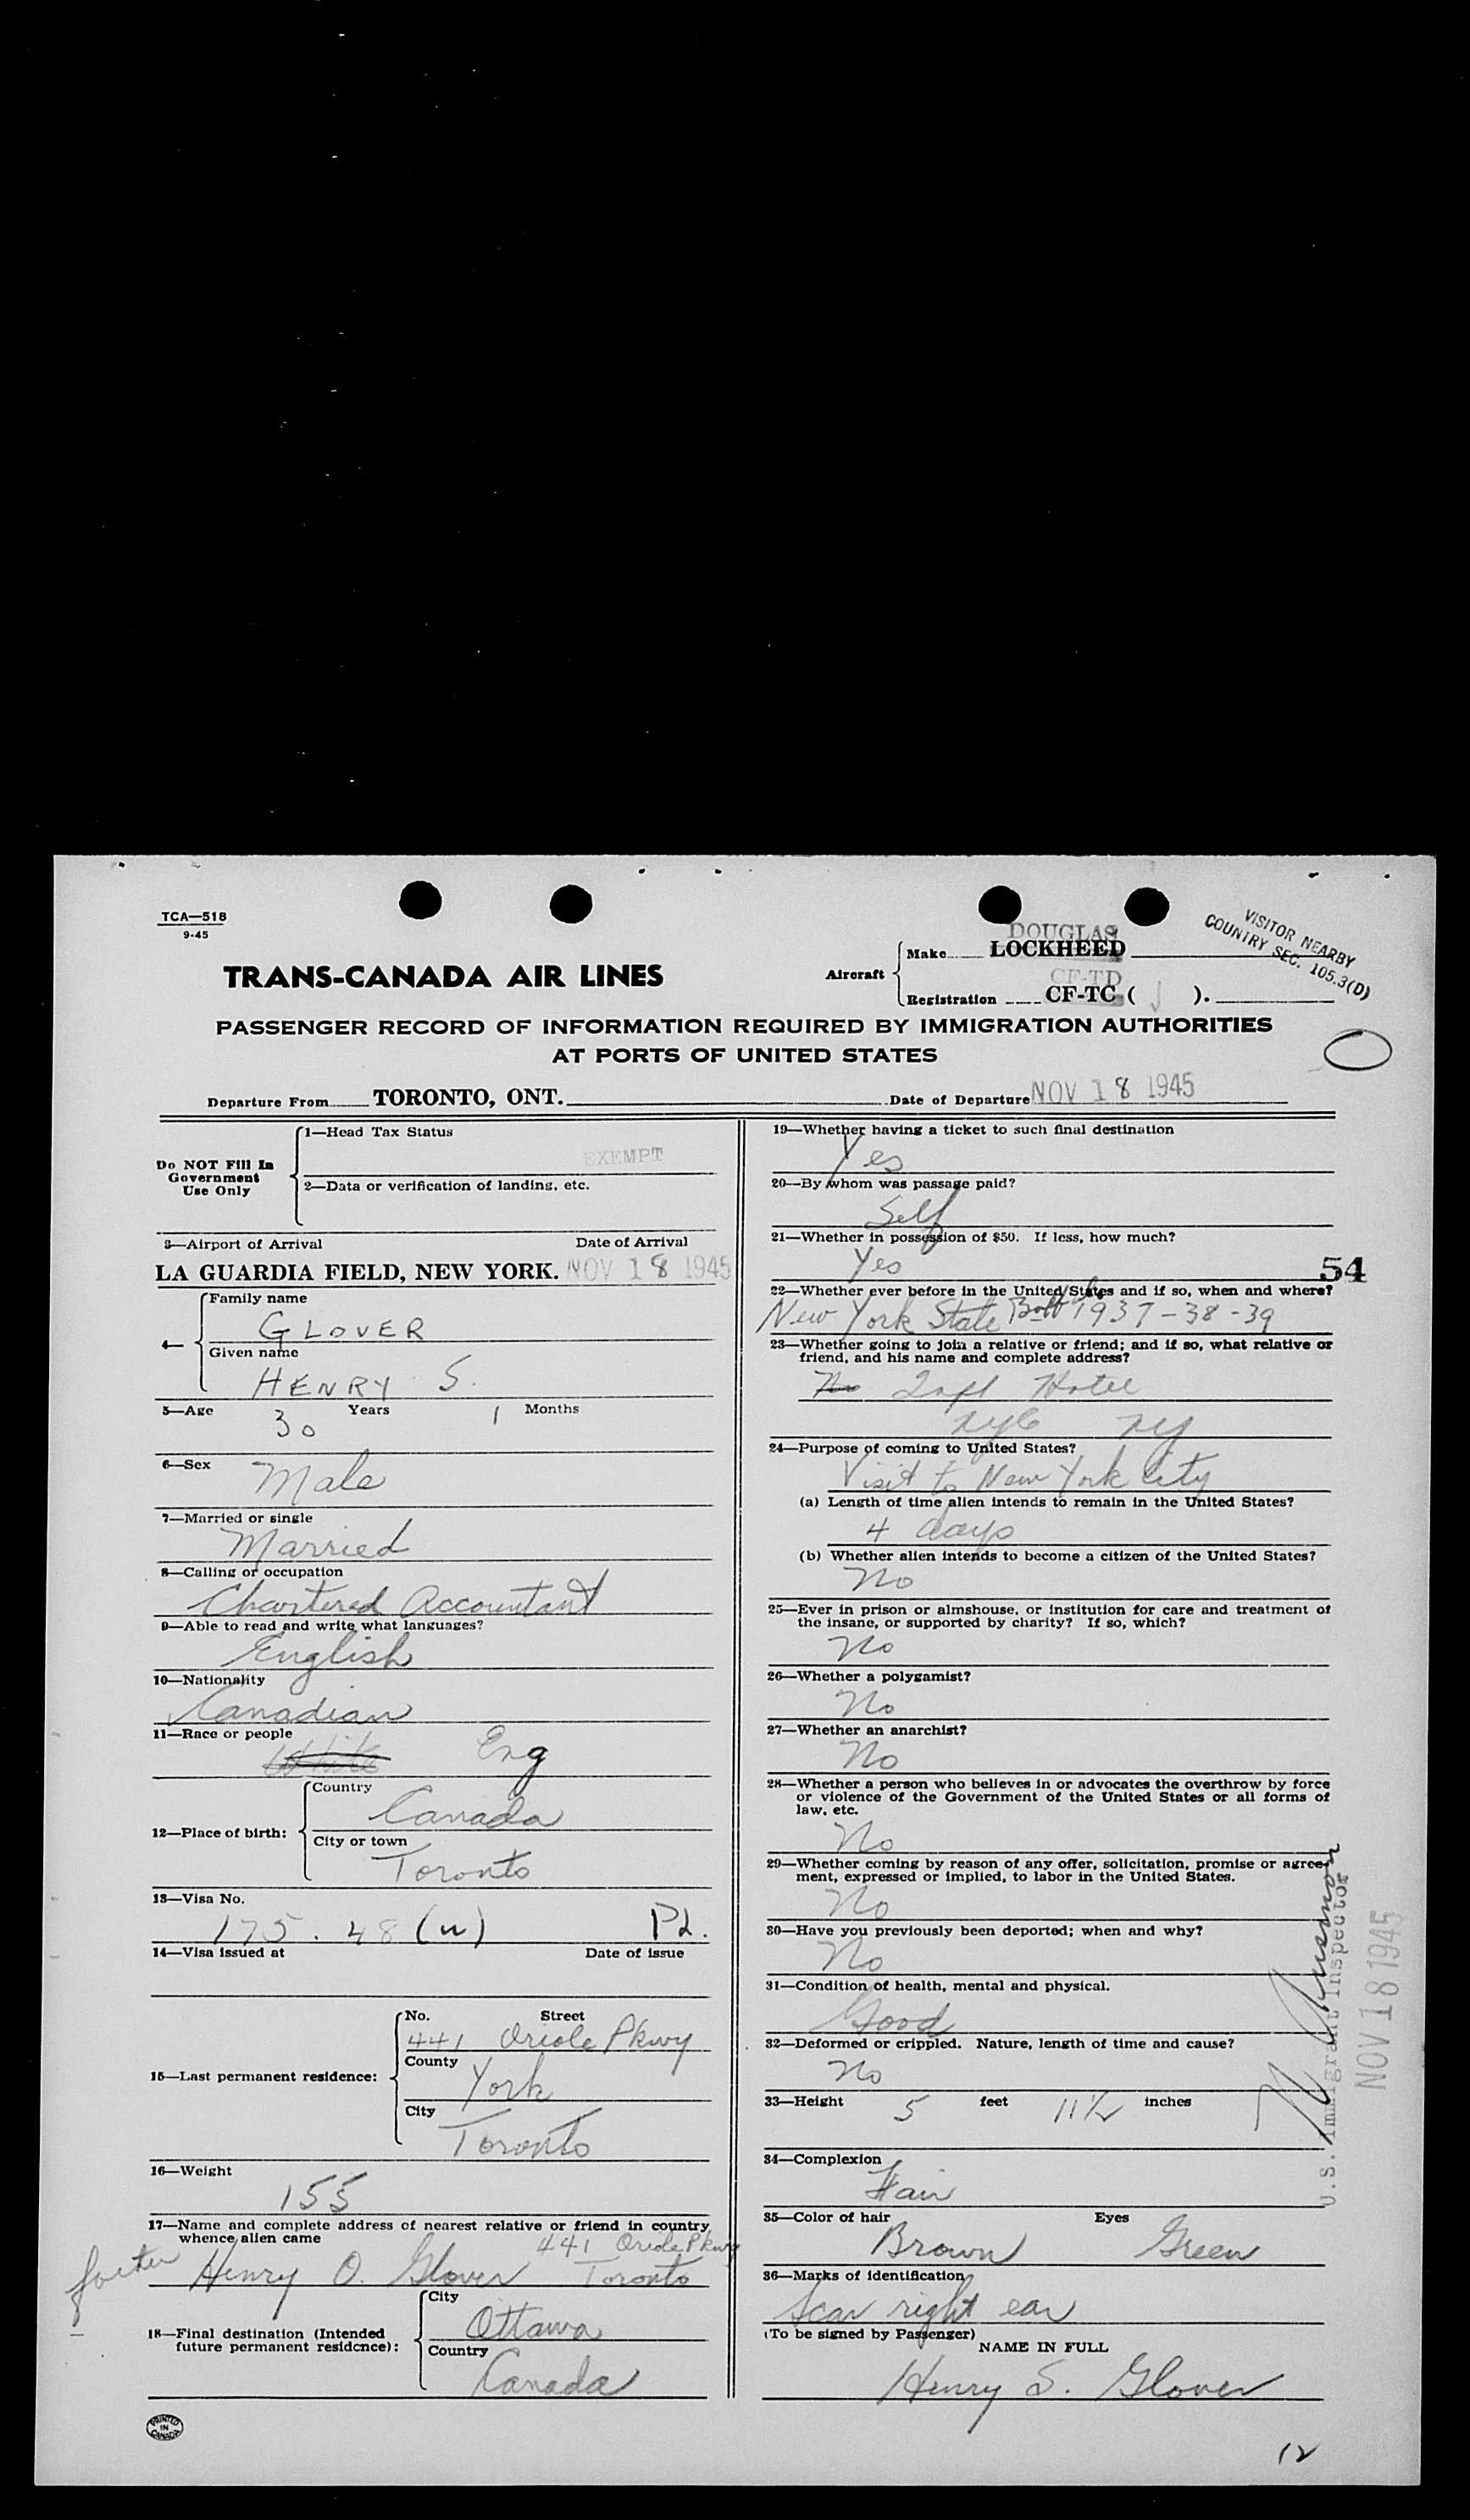 TCA—518
9-45
VISITOR NEARBY
COUNTRY SEC. 105.3(D)
DOUGLAS
Make LOCKHEED
TRANS-CANADA AIR LINES
Aircraft
CF-TD
Registration CF-TC ( J ).
PASSENGER RECORD OF INFORMATION REQUIRED BY IMMIGRATION AUTHORITIES
AT PORTS OF UNITED STATES
Departure From TORONTO, ONT. Date of Departure NOV 18 1945
Do NOT Fill In
Government
Use Only
1—Head Tax Status
EXEMPT
2—Data or verification of landing, etc.
3—Airport of Arrival Date of Arrival
LA GUARDIA FIELD, NEW YORK. NOV 18 1945
4—
Family name
GLOVER
Given name
HENRY S.
5—Age 30 Years 1 Months
6—Sex Male
7—Married or single
Married
8—Calling or occupation
Chartered Accountant
9—Able to read and write what languages?
English
10—Nationality
Canadian
11—Race or people
White Eng
12—Place of birth:
Country
Canada
City or town
Toronto
13—Visa No.
175.48(w) Pd.
14—Visa issued at Date of issue
15—Last permanent residence:
No. Street
441 Oriole Pkwy
County
York
City
Toronto
16—Weight
155
17—Name and complete address of nearest relative or friend in country
whence alien came 441 Oriole Pkwy
Henry O. Glover Toronto
18—Final destination (Intended
future permanent residence):
City
Ottawa
Country
Canada
PRINTED
IN
CANADA
19—Whether having a ticket to such final destination
Yes
20—By whom was passage paid?
Self
21—Whether in possession of $50. If less, how much?
Yes
54
22—Whether ever before in the United States and if so, when and where?
New York State 1937-38-39
23—Whether going to join a relative or friend; and if so, what relative or
friend, and his name and complete address?
No Taft Hotel
NYC NY
24—Purpose of coming to United States?
Visit to New York City
(a) Length of time alien intends to remain in the United States?
4 days
(b) Whether alien intends to become a citizen of the United States?
No
25—Ever in prison or almshouse, or institution for care and treatment of
the insane, or supported by charity? If so, which?
No
26—Whether a polygamist?
No
27—Whether an anarchist?
No
28—Whether a person who believes in or advocates the overthrow by force
or violence of the Government of the United States or all forms of
law, etc.
No
29—Whether coming by reason of any offer, solicitation, promise or agree-
ment, expressed or implied, to labor in the United States.
No
30—Have you previously been deported; when and why?
No
31—Condition of health, mental and physical.
Good
32—Deformed or crippled. Nature, length of time and cause?
No
33—Height 5 feet 11½ inches
34—Complexion
Fair
35—Color of hair Eyes
Brown Green
36—Marks of identification
Scar right ear
(To be signed by Passenger)
NAME IN FULL
Henry S. Glover
U.S. Immigrant Inspector
NOV 18 1945
12